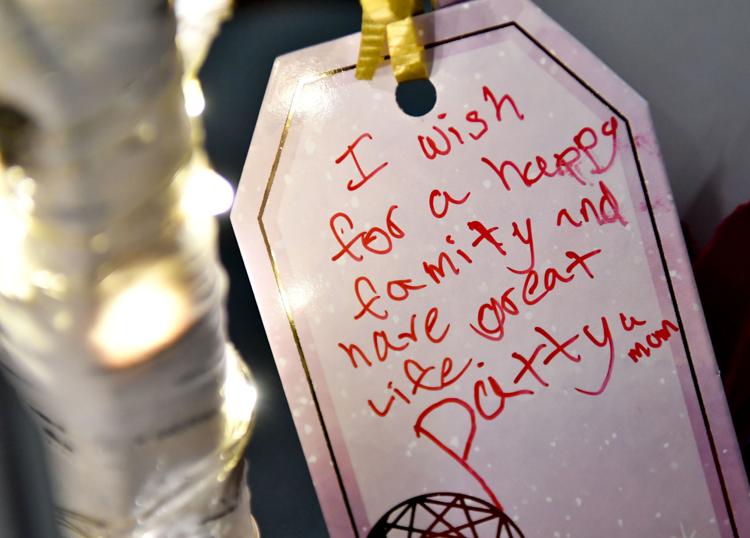 I wish
for a happy
family and
have great
life.
Patty a
mom